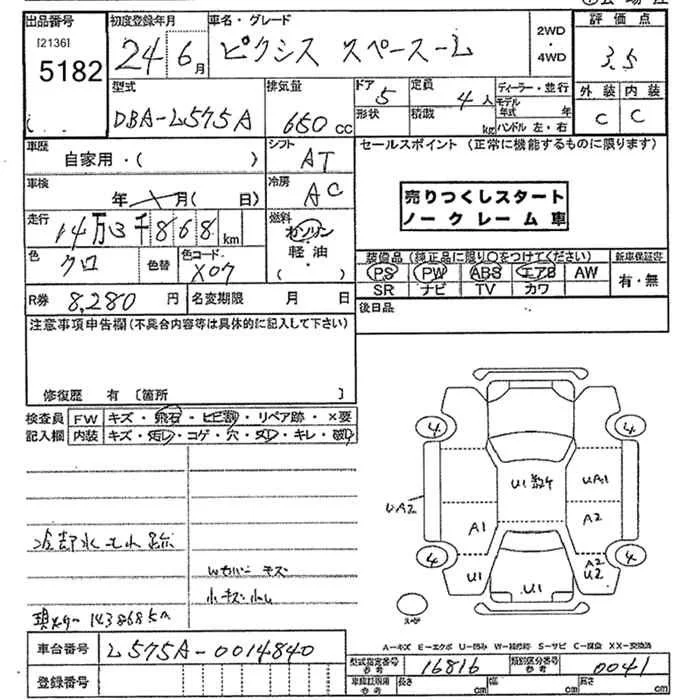 出品番号 初度登録年月 車名・グレード 2WD・4WD 評価点
[2136]
5182
24 6月 ピクシス スペース 3.5
型式 排気量 ドア 定員 ディーラー・並行 外装 内装
DBA-L575A 650cc 5 4人 モデル年式 年 C C
形状 積載 kg ハンドル 左・右
車歴 自家用・( ) シフト AT セールスポイント (正常に機能するものに限ります)
車検 年 月( 日) 冷房 AC
売りつくしスタート
ノークレーム車
走行 14万3千868km 燃料 ガソリン・軽油( )
色 クロ 色替 色コード X07
装備品 (純正品に限り○をつけてください) 新車保証書
PS PW ABS エアB AW 有・無
SR ナビ TV カワ
R券 8,280円 名変期限 月 日 後日品
注意事項申告欄(不具合内容等は具体的に記入して下さい)
修復歴 有 〔箇所 〕
検査員記入欄 FW キズ・飛石・ヒビ割・リペア跡・×要
内装 キズ・汚レ・コゲ・穴・スレ・キレ・破レ
4 4
U1 UA1
UA2
A1 A2
4 4
U1 A2 U2
U1
冷却水モレ跡
Wカバー キズ
小キズ小凹
143868km
スペア
A-キズ E-エクボ U-凹み W-補修跡 S-サビ C-腐食 XX-交換済
車台番号 L575A-0014840
型式指定番号 参考 16816 類別区分番号 参考 0041
登録番号 車検証記載 参考 長さ cm 幅 cm 高さ cm